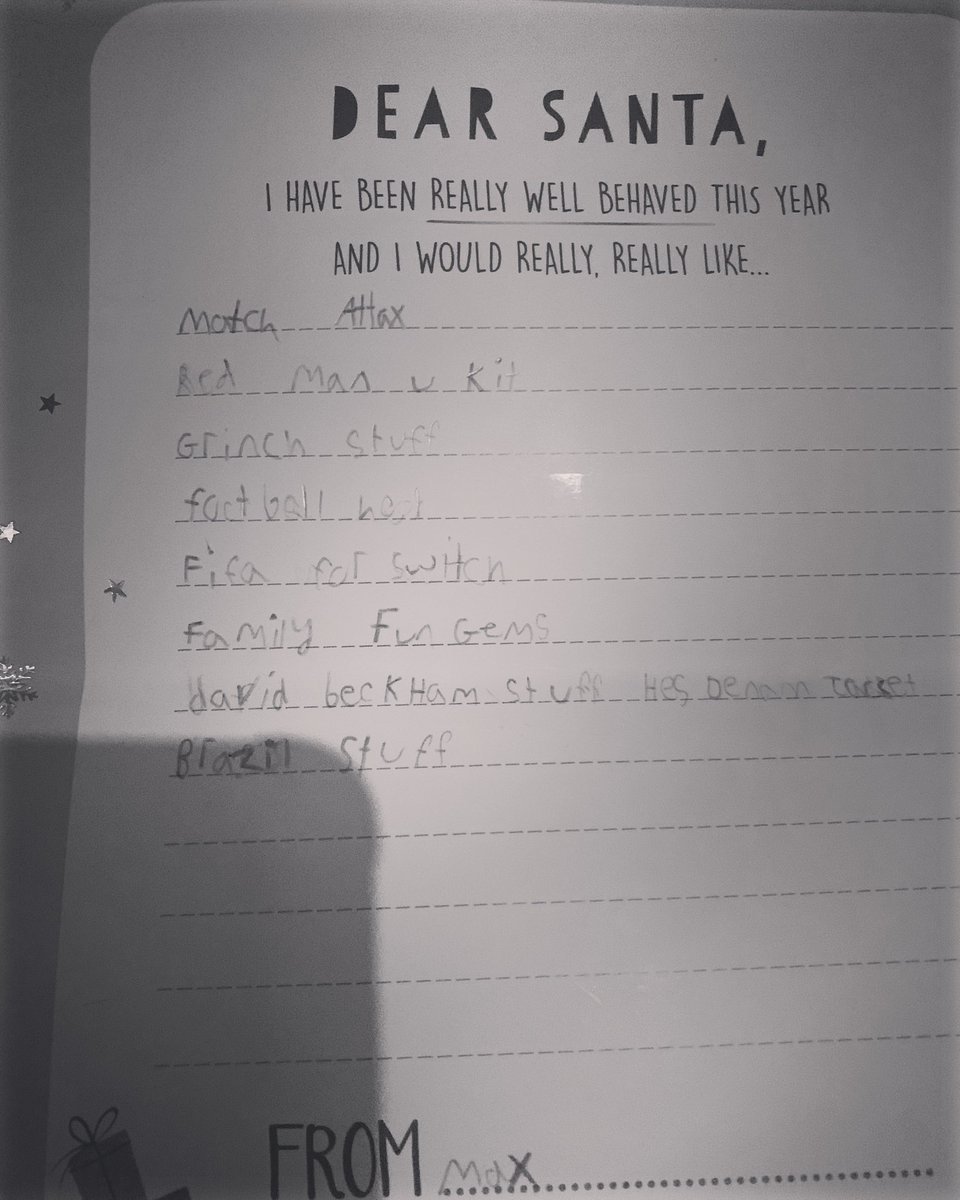 DEAR SANTA,
I HAVE BEEN REALLY WELL BEHAVED THIS YEAR
AND I WOULD REALLY, REALLY LIKE...
Match Attax
Red Man u Kit
Grinch stuff
football
Fifa for switch
Family Fun Gems
david beckHam stuff Hes
Brazil stuff
FROM Max